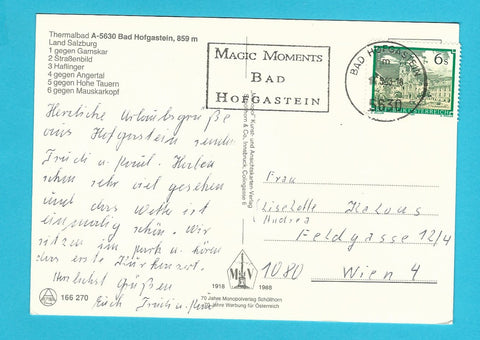 Thermalbad A-5630 Bad Hofgastein, 859 m
Land Salzburg
1 gegen Gamskar
2 Straßenbild
3 Haflinger
4 gegen Angertal
5 gegen Hohe Tauern
6 gegen Mauskarkopf
MAGIC MOMENTS
BAD
HOFGASTEIN
BAD HOFGASTEIN
5630
6 S
Herzliche Urlaubsgrüße
aus Hofgastein senden
Trudi u. Paul. Haben
schon sehr viel gesehen
und das Wetter ist
einmalig schön. Wir
sitzen im Park u. hören
das erste Kurkonzert.
Herzlichst Grüßen
Euch Trudi u. Paul
Kunst- und Ansichtskarten-Verlag
Schöllhorn & Co., Innsbruck, Colingasse 6
Frau
Liselotte
Andrea
Feldgasse 12/4
1080 Wien
166 270
1918 1988
70 Jahre Monopolverlag Schöllhorn
70 Jahre Werbung für Österreich